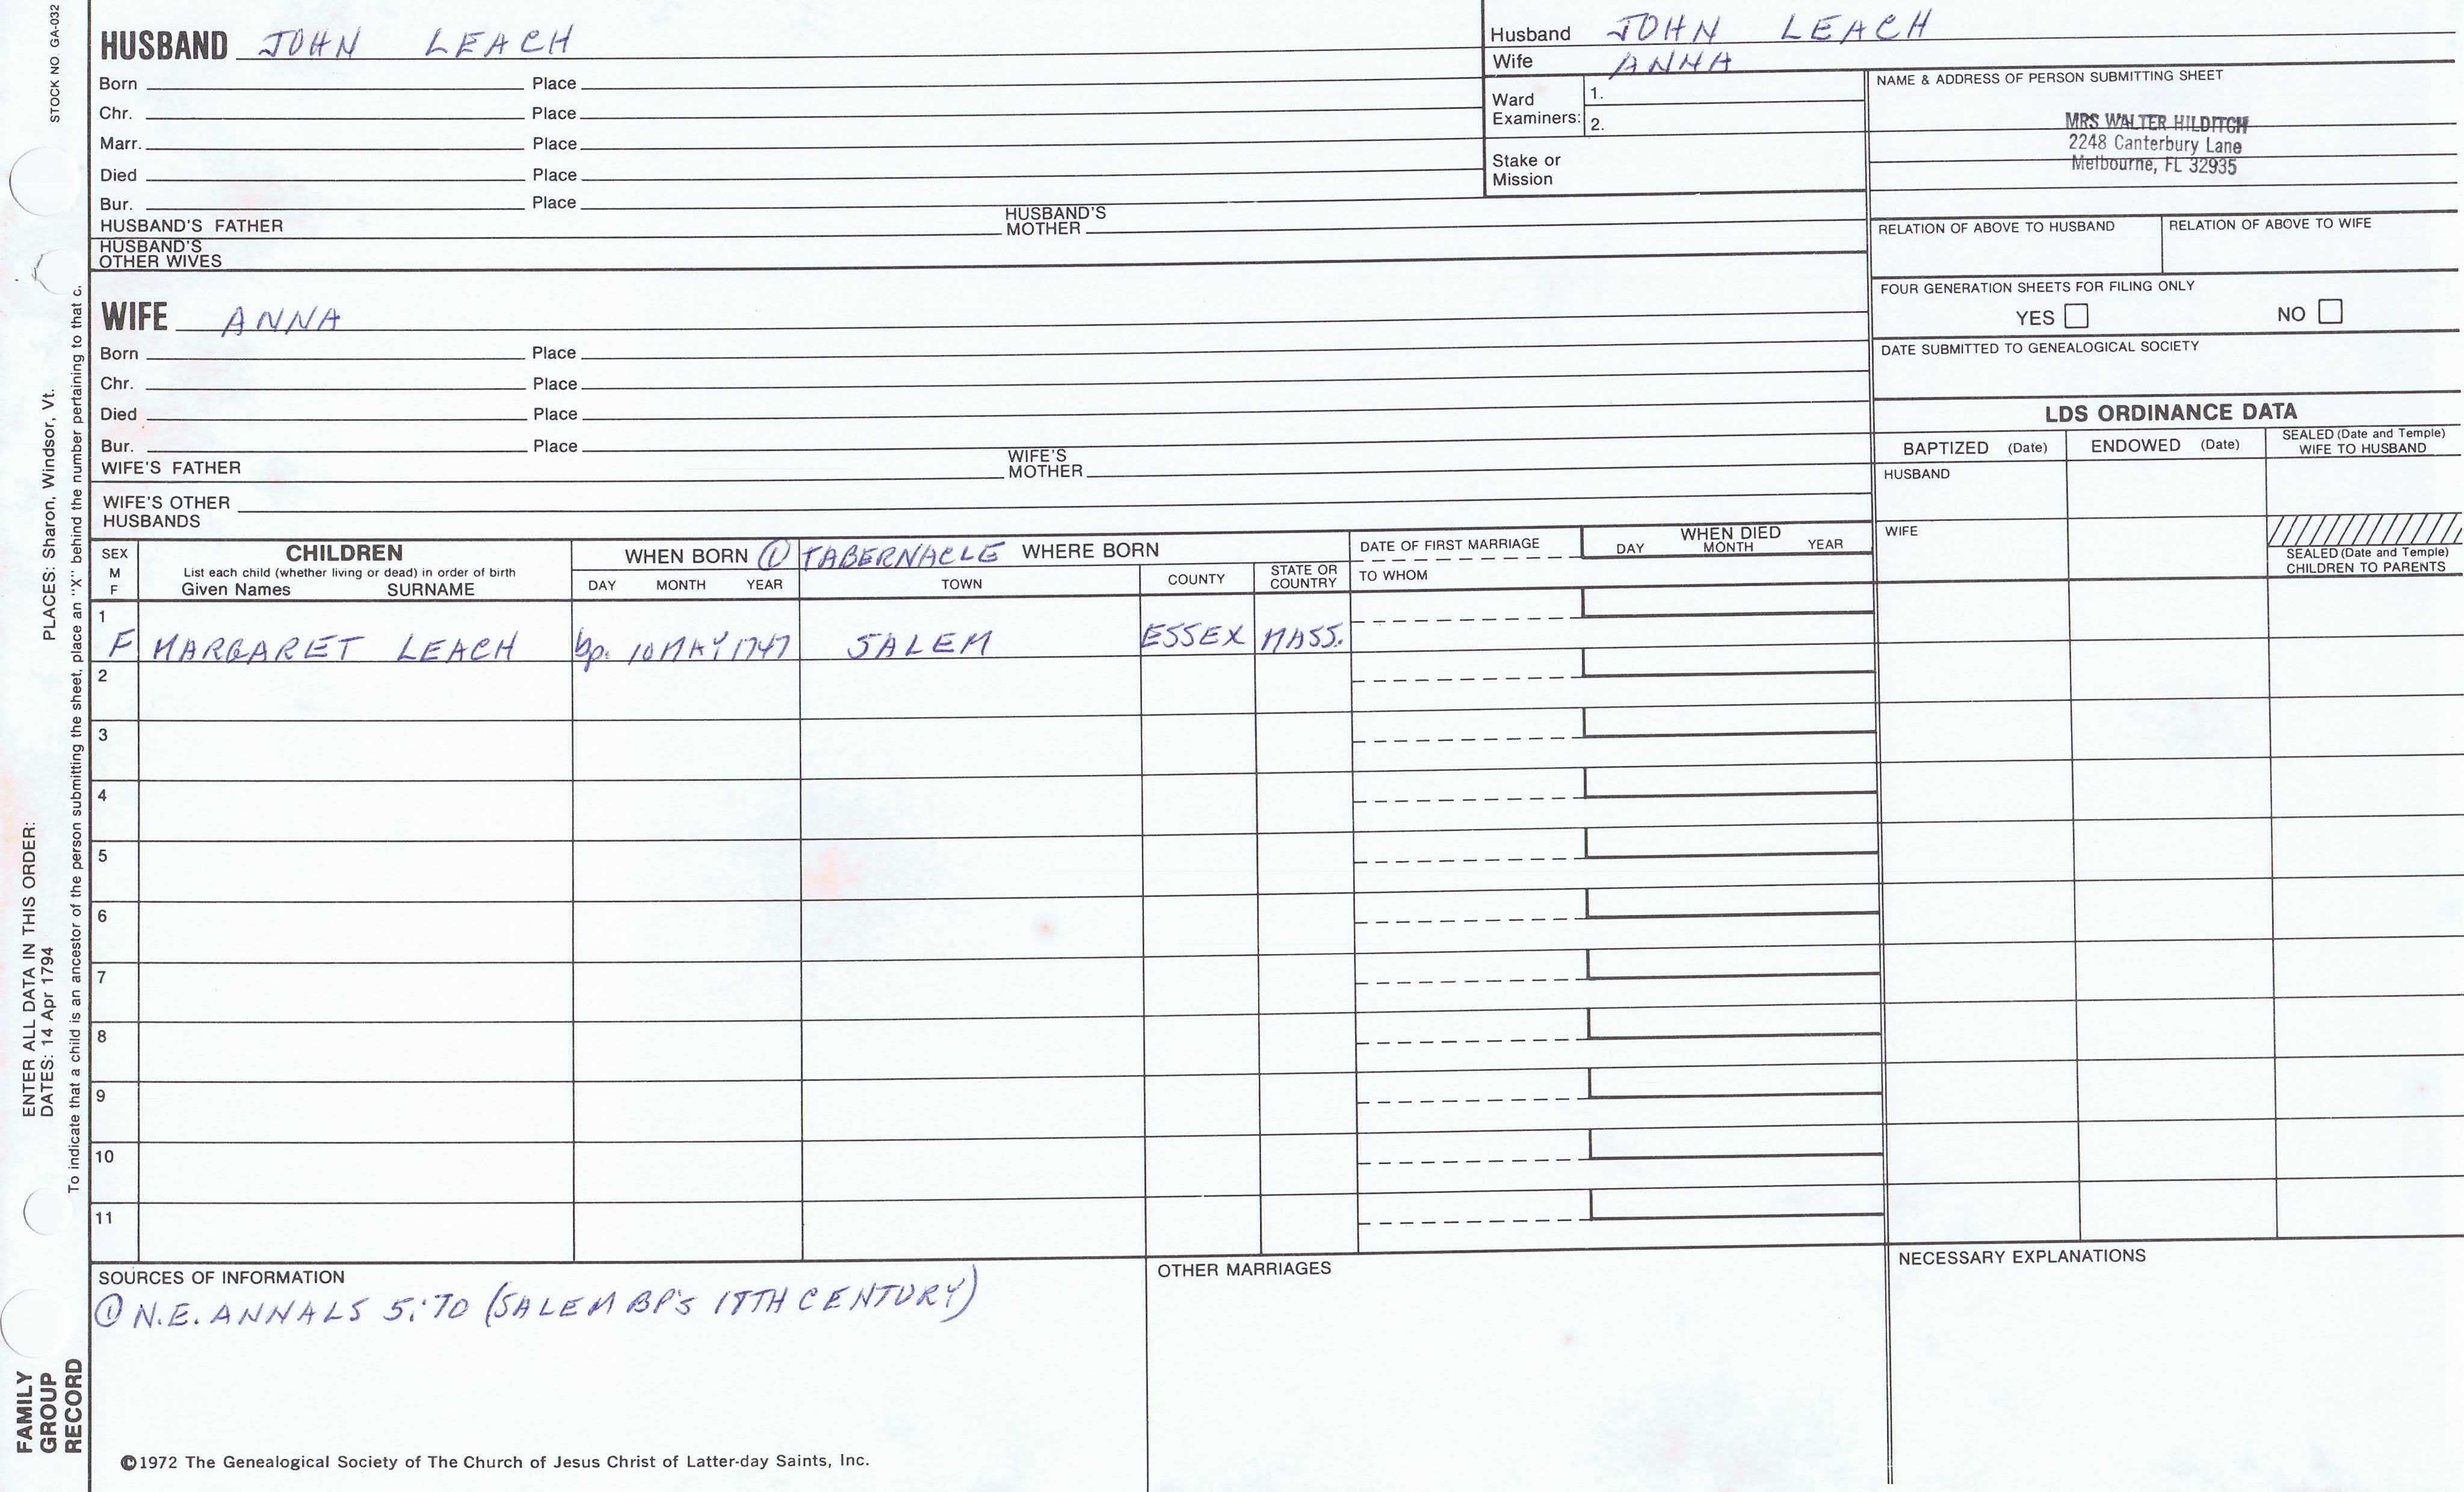 STOCK NO GA-032
HUSBAND JOHN LEACH
Born Place
Chr. Place
Marr. Place
Died Place
Bur. Place
HUSBAND'S FATHER HUSBAND'S MOTHER
HUSBAND'S OTHER WIVES
Husband JOHN LEACH
Wife ANNA
Ward Examiners: 1.
2.
Stake or Mission
NAME & ADDRESS OF PERSON SUBMITTING SHEET
MRS WALTER HILDITCH
2248 Canterbury Lane
Melbourne, FL 32935
RELATION OF ABOVE TO HUSBAND RELATION OF ABOVE TO WIFE
FOUR GENERATION SHEETS FOR FILING ONLY
YES NO
DATE SUBMITTED TO GENEALOGICAL SOCIETY
WIFE ANNA
Born Place
Chr. Place
Died Place
Bur. Place
WIFE'S FATHER WIFE'S MOTHER
WIFE'S OTHER HUSBANDS
LDS ORDINANCE DATA
BAPTIZED (Date) ENDOWED (Date) SEALED (Date and Temple) WIFE TO HUSBAND
HUSBAND
WIFE
SEALED (Date and Temple) CHILDREN TO PARENTS
SEX M F
CHILDREN
List each child (whether living or dead) in order of birth
Given Names SURNAME
WHEN BORN ① TABERNACLE WHERE BORN
DAY MONTH YEAR TOWN COUNTY STATE OR COUNTRY
DATE OF FIRST MARRIAGE
TO WHOM
WHEN DIED
DAY MONTH YEAR
1
F MARGARET LEACH bp. 10 MAY 1747 SALEM ESSEX MASS.
2
3
4
5
6
7
8
9
10
11
SOURCES OF INFORMATION
① N.E. ANNALS 5:70 (SALEM BP'S 18TH CENTURY)
OTHER MARRIAGES
NECESSARY EXPLANATIONS
©1972 The Genealogical Society of The Church of Jesus Christ of Latter-day Saints, Inc.
FAMILY
GROUP
RECORD
ENTER ALL DATA IN THIS ORDER:
DATES: 14 Apr 1794 PLACES: Sharon, Windsor, Vt.
To indicate that a child is an ancestor of the person submitting the sheet, place an "X" behind the number pertaining to that c.